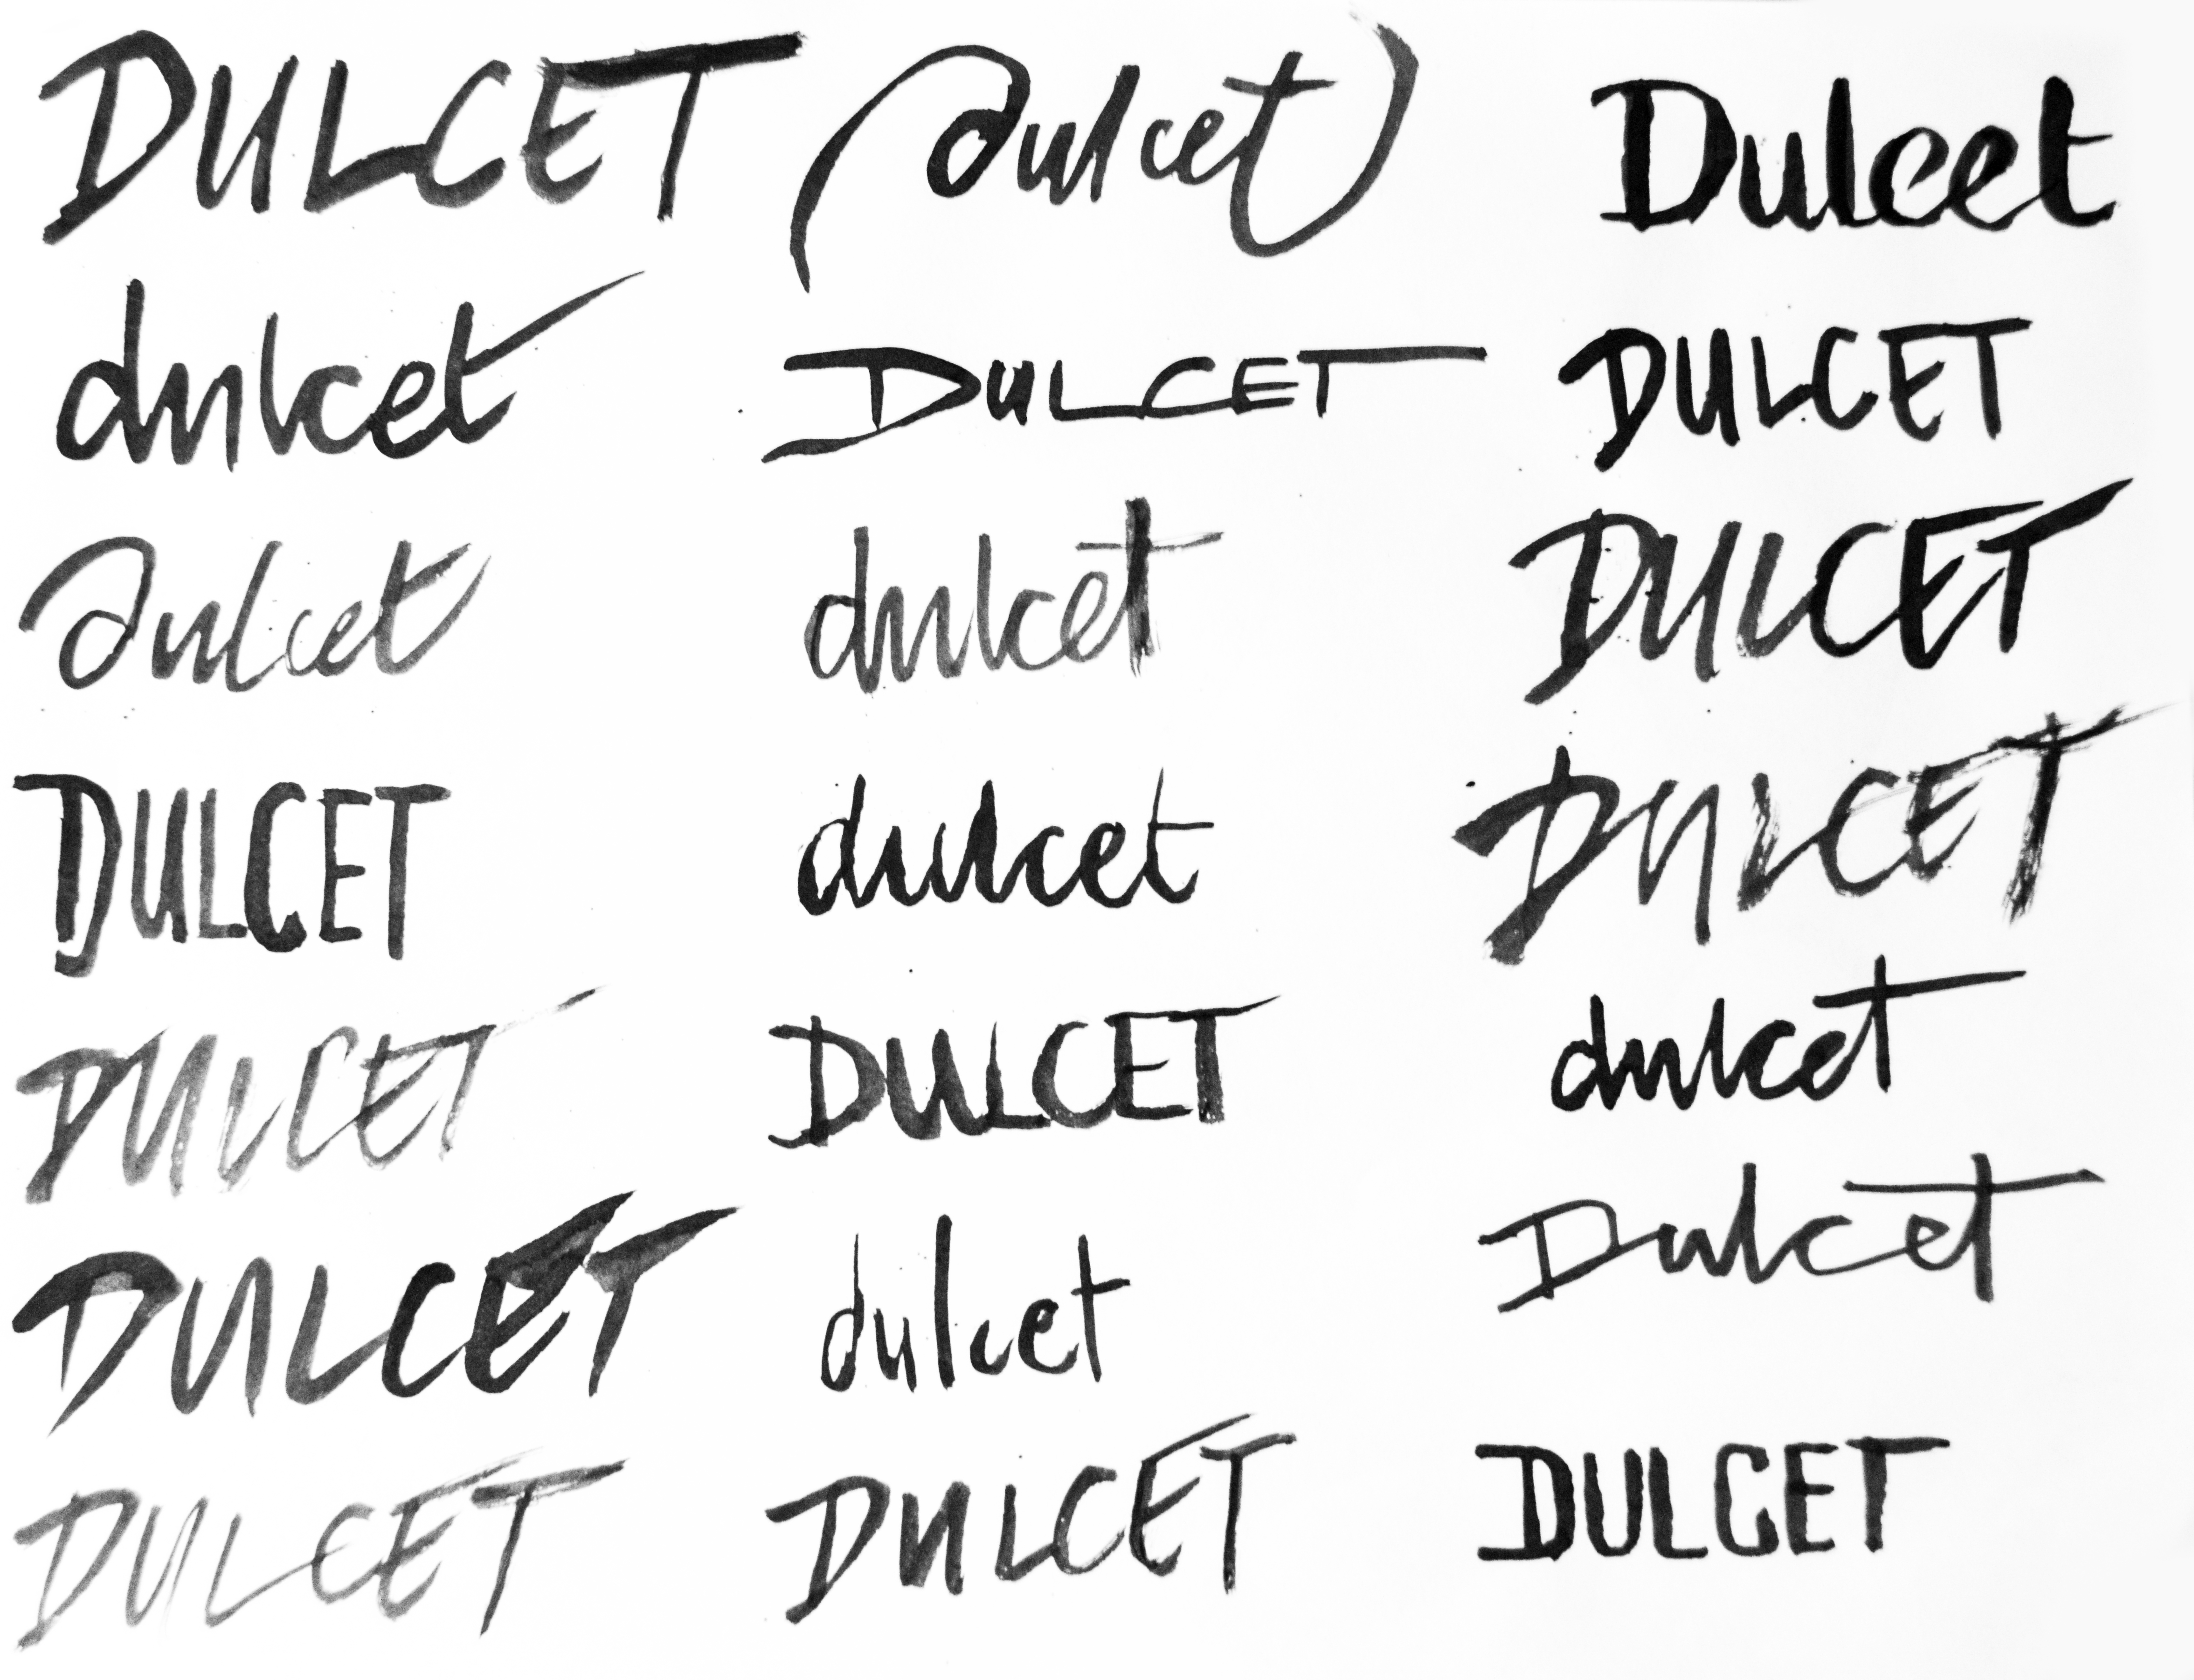 DULCET dulcet Dulcet
dulcet DULCET DULCET
dulcet dulcet DULCET
DULCET dulcet DULCET
DULCET DULCET dulcet
DULCET dulcet Dulcet
DULCET DULCET DULCET